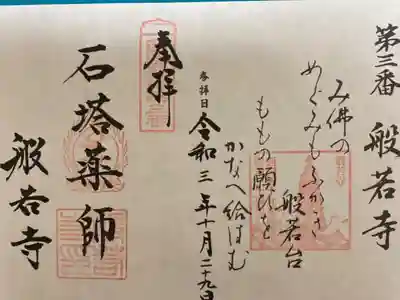 第三番 般若寺
み佛の
めぐみもふかき
般若台
ももの願ひを
かなへ給はむ
参拝日 令和三年十月二十九日
奉拝
石塔薬師
般若寺